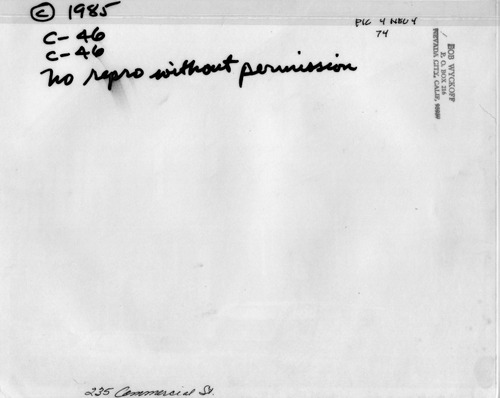 © 1985
C-46
C-46
no repro without permission
PIC 4 NEU 4
74
BOB WYCKOFF
P. O. BOX 216
NEVADA CITY, CALIF.
235 Commercial St.